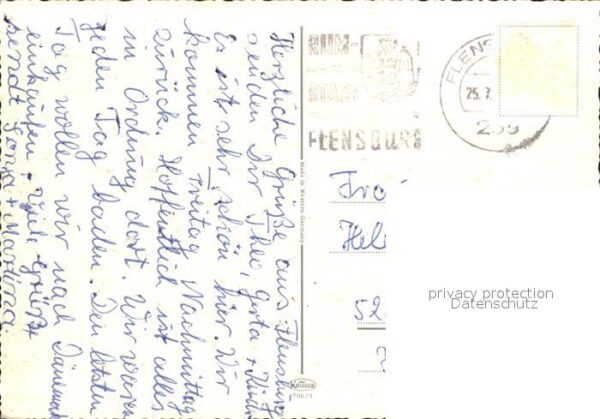 Herzliche Grüße aus Flensburg
senden Dir Theo, Gerta + Kinder
Es ist sehr schön hier. Wir
kommen Freitag Nachmittag
zurück. Hoffentlich ist alles
in Ordnung dort. Wir waren
jeden Tag baden. Den letzten
Tag wollen wir nach Dänemark
einkaufen. Viele Grüße
sendt + Martina.
RUM-
FLENSBURG
FLENS
25.7
239
Made in Western Germany
Hel
52
Krüger
706/9
privacy protection
Datenschutz